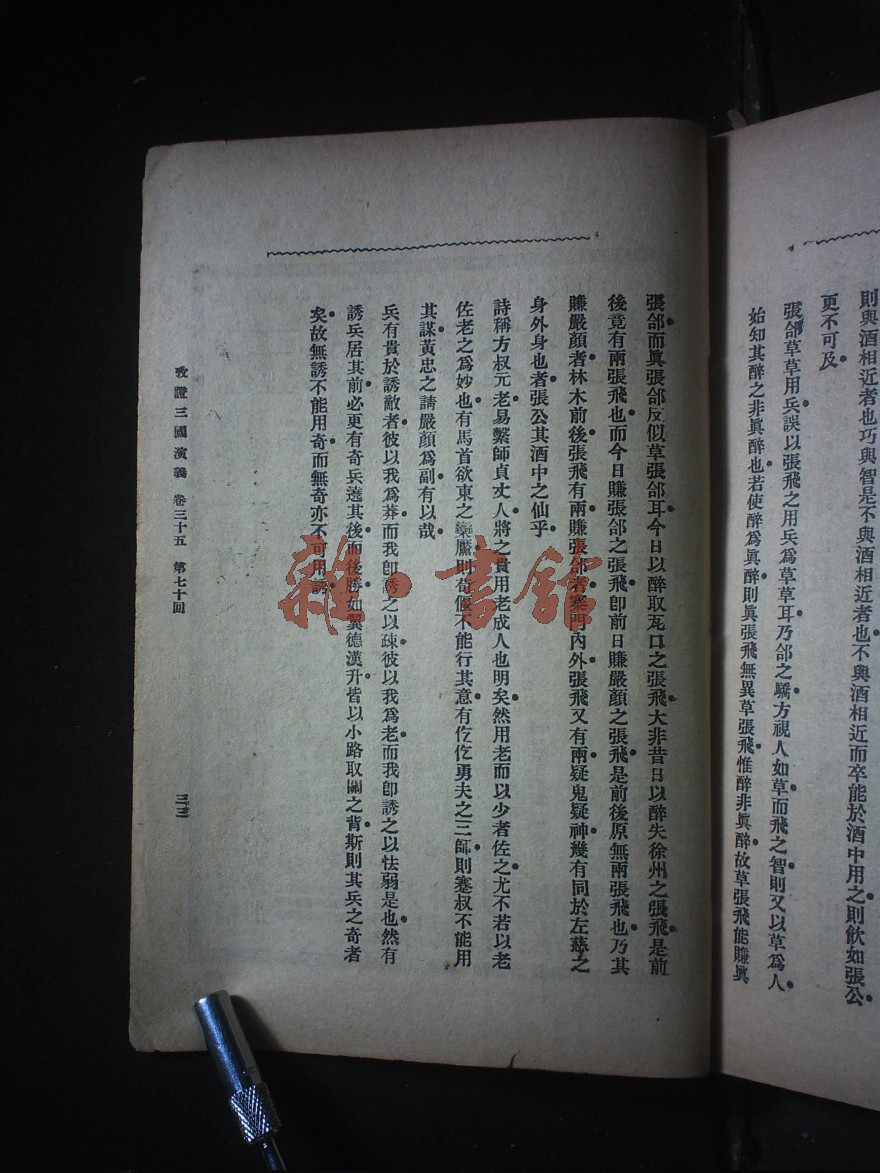 則與酒相近者也巧與智是不與酒相近者也不與酒相近而卒能於酒中用之則飲如張公
更不可及
張郃草草用兵誤以張飛之用兵爲草草耳乃郃之驕方視人如草而飛之智則又以草爲人
始知其醉之非眞醉也若使醉爲眞醉則眞張飛無異草張飛惟醉非眞醉故草張飛能賺眞
張郃而眞張郃反似草張郃耳今日以醉取瓦口之張飛大非昔日以醉失徐州之張飛是前
後竟有兩張飛也而今日賺張郃之張飛卽前日賺嚴顏之張飛是前後原無兩張飛也乃其
賺嚴顏者林木前後張飛有兩賺張郃者寨門內外張飛又有兩疑鬼疑神幾有同於左慈之
身外身也者張公其酒中之仙乎
詩稱方叔元老易繫師貞丈人將之貴用老成人也明矣然用老而以少者佐之尤不若以老
佐老之爲妙也有馬首欲東之欒黶則荀偃不能行其意有仡仡勇夫之三師則蹇叔不能用
其謀黃忠之請嚴顏爲副有以哉
兵有貴於誘敵者彼以我爲莽而我卽誘之以疎彼以我爲老而我卽誘之以怯弱是也然有
誘兵居其前必更有奇兵遶其後而後勝如翼德漢升皆以小路取關之背斯則其兵之奇者
矣故無誘不能用奇而無奇亦不可用誘
攷證三國演義 卷三十五 第七十回
雜·書館